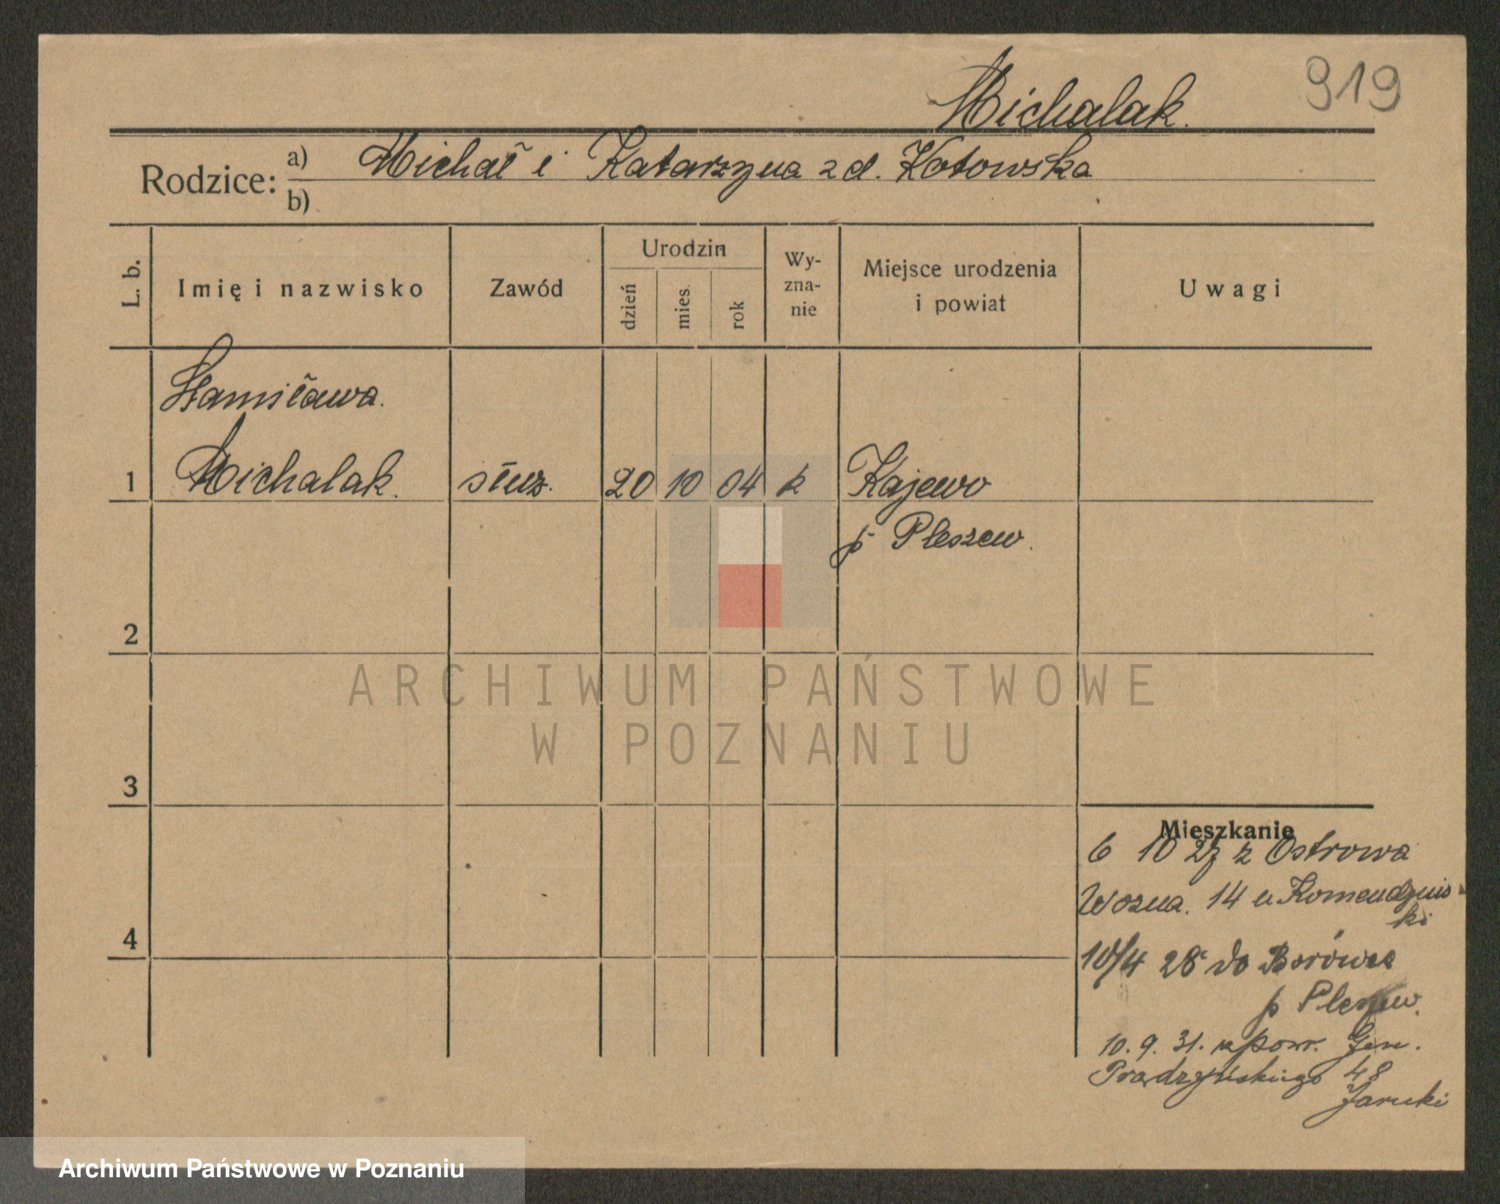 919
Michalak.
Rodzice:
a) Michał i Katarzyna zd. Kotowska
b)
L. b.
Imię i nazwisko
Zawód
Urodzin
dzień
mies.
rok
Wy-
zna-
nie
Miejsce urodzenia
i powiat
Uwagi
Stanisława
1 Michalak. służ. 20 10 04 k Kajewo
p Pleszew.
2
3
4
Mieszkanie
6 10 27 z Ostrowa
Wozna. 14 u Komendzińs
ki
10/4 28 do Borówce
p Pleszew.
10. 9. 31. powr. Gen.
Prądzyńskiego 48
Jarucki
ARCHIWUM PAŃSTWOWE
W POZNANIU
Archiwum Państwowe w Poznaniu